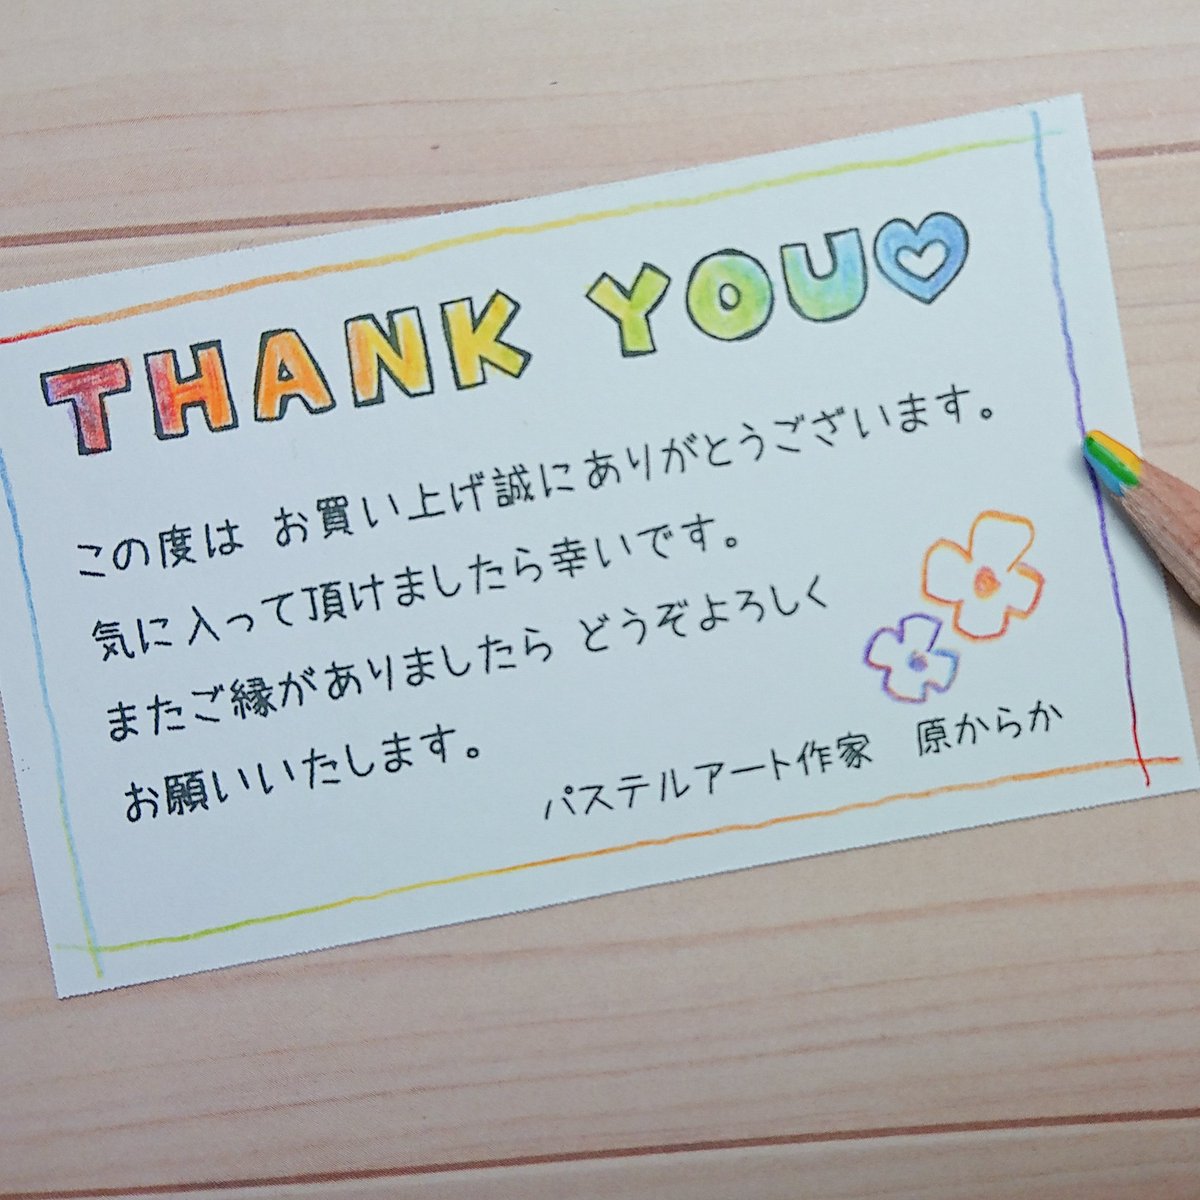 THANK YOU
この度は お買い上げ誠にありがとうございます。
気に入って頂けましたら幸いです。
またご縁がありましたら どうぞよろしく
お願いいたします。
パステルアート作家 原からか